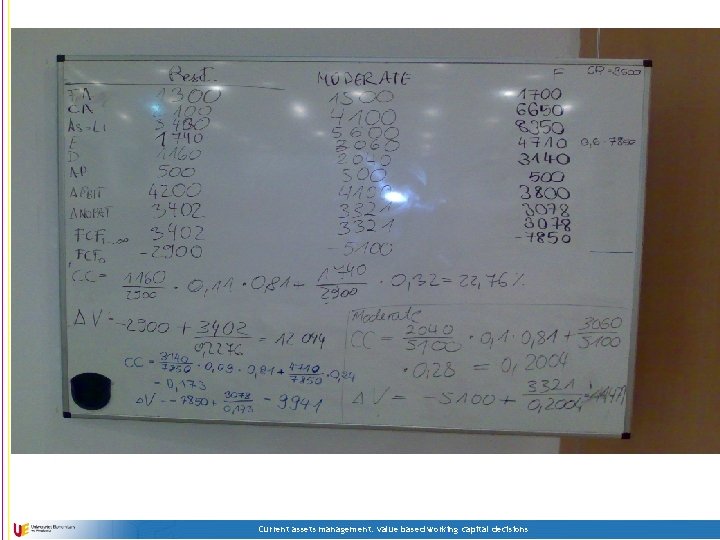 Rest. MODERATE F CR=8500
FA 1300 1500 1700
CA 2100 4100 6650
AS=LI 3400 5600 8350
E 1740 3060 4710 0,6·7850
D 1160 2040 3140
AP 500 500 500
ΔEBIT 4200 4100 3800
ΔNOPAT 3402 3321 3078
FCF1...∞ 3402 3321 3078
FCF0 -2900 -5100 -7850
CC= 1160/2900 · 0,11 · 0,81 + 1740/2900 · 0,32 = 22,76%
ΔV = -2900 + 3402/0,2276 = 12 044
CC = 3140/7850 · 0,09 · 0,81 + 4710/7850 · 0,24
= 0,173
ΔV = -7850 + 3078/0,173 = 9941
Moderate
CC = 2040/5100 · 0,1 · 0,81 + 3060/5100
· 0,28 = 0,2004
ΔV = -5100 + 3321/0,2004
Uniwersytet Ekonomiczny
we Wrocławiu
Current assets management. Value based working capital decisions